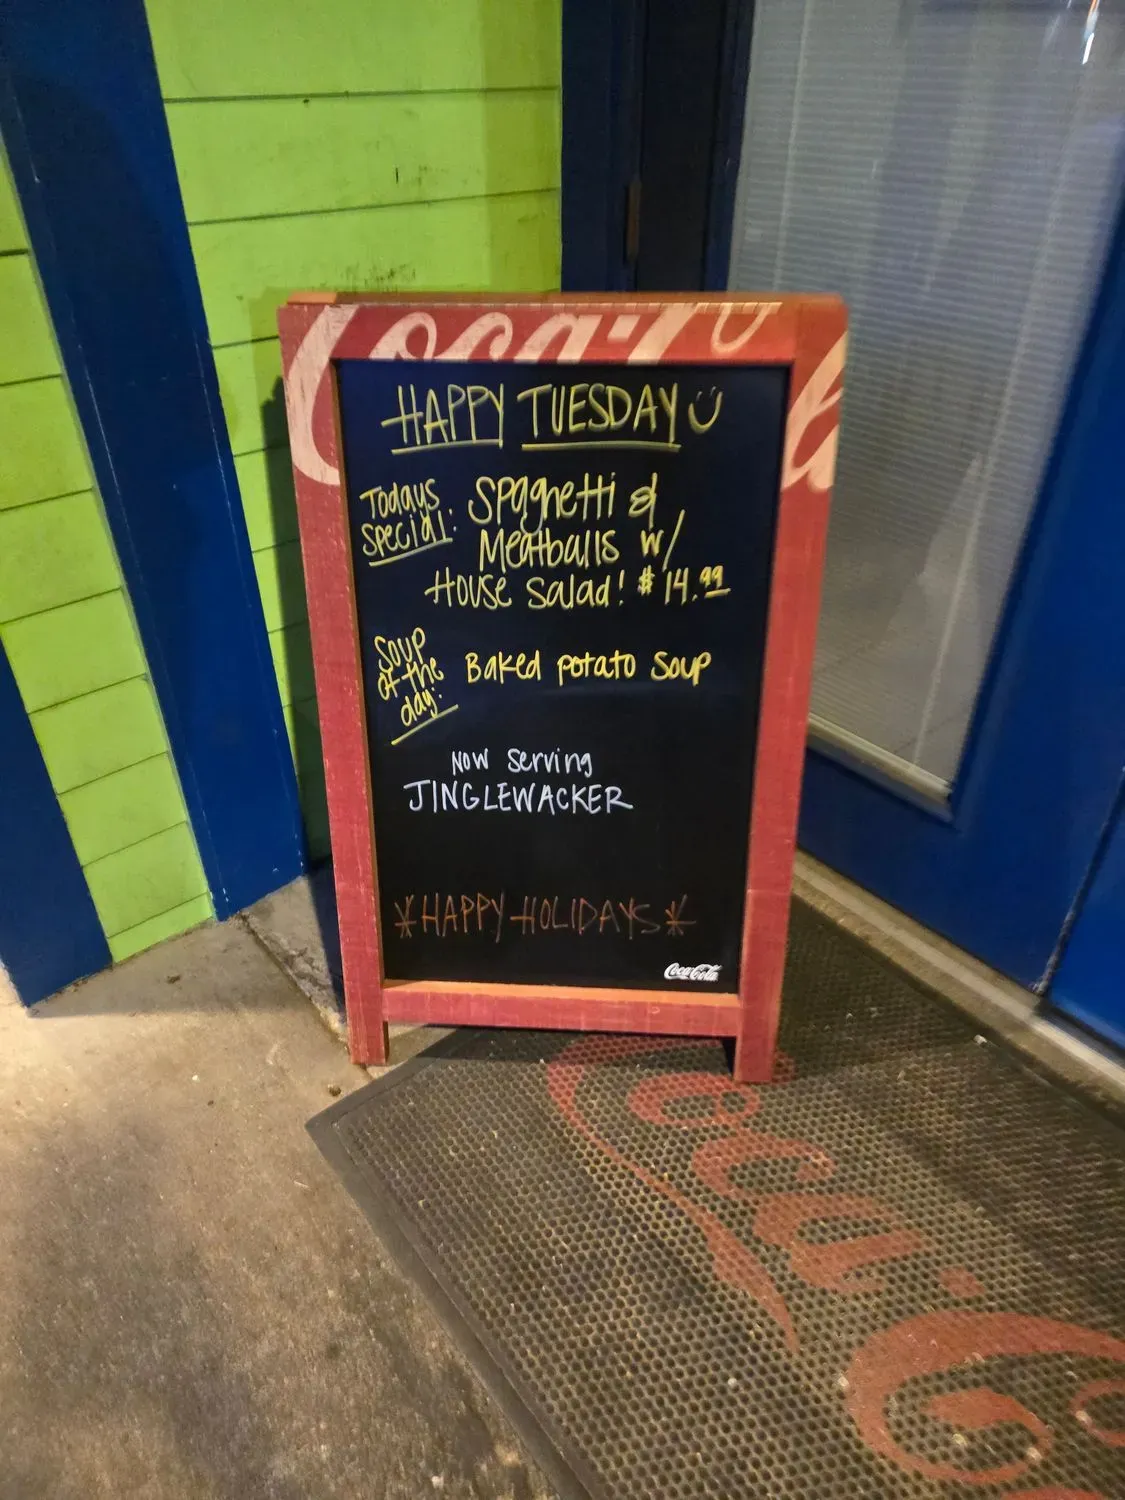 Coca-Cola
HAPPY TUESDAY
Todays
Special:
Spaghetti &
Meatballs w/
House Salad! $14.99
Soup
of the
day:
Baked potato Soup
Now Serving
JINGLEWACKER
*HAPPY HOLIDAYS*
Coca-Cola
Coca-C